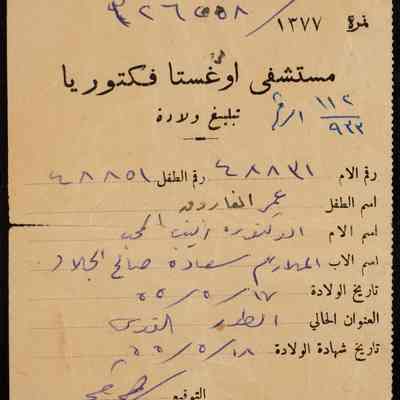 نمرة ١٣٧٧ / ٢٦٥٥٨
مستشفى اوغستا فكتوريا
تبليغ ولادة
الرقم ١١٢ / ٩٣٣
رقم الام ٤٨٨٣١ رقم الطفل ٤٨٨٥١
اسم الطفل عمر الفاروق
اسم الام الدكتورة زينب المحب
اسم الاب الملازم سعادة صالح الجلاد
تاريخ الولادة ١٧/٥/٥٥
العنوان الحالي الطور القدس
تاريخ شهادة الولادة ١٨/٥/٥٥
التوقيع